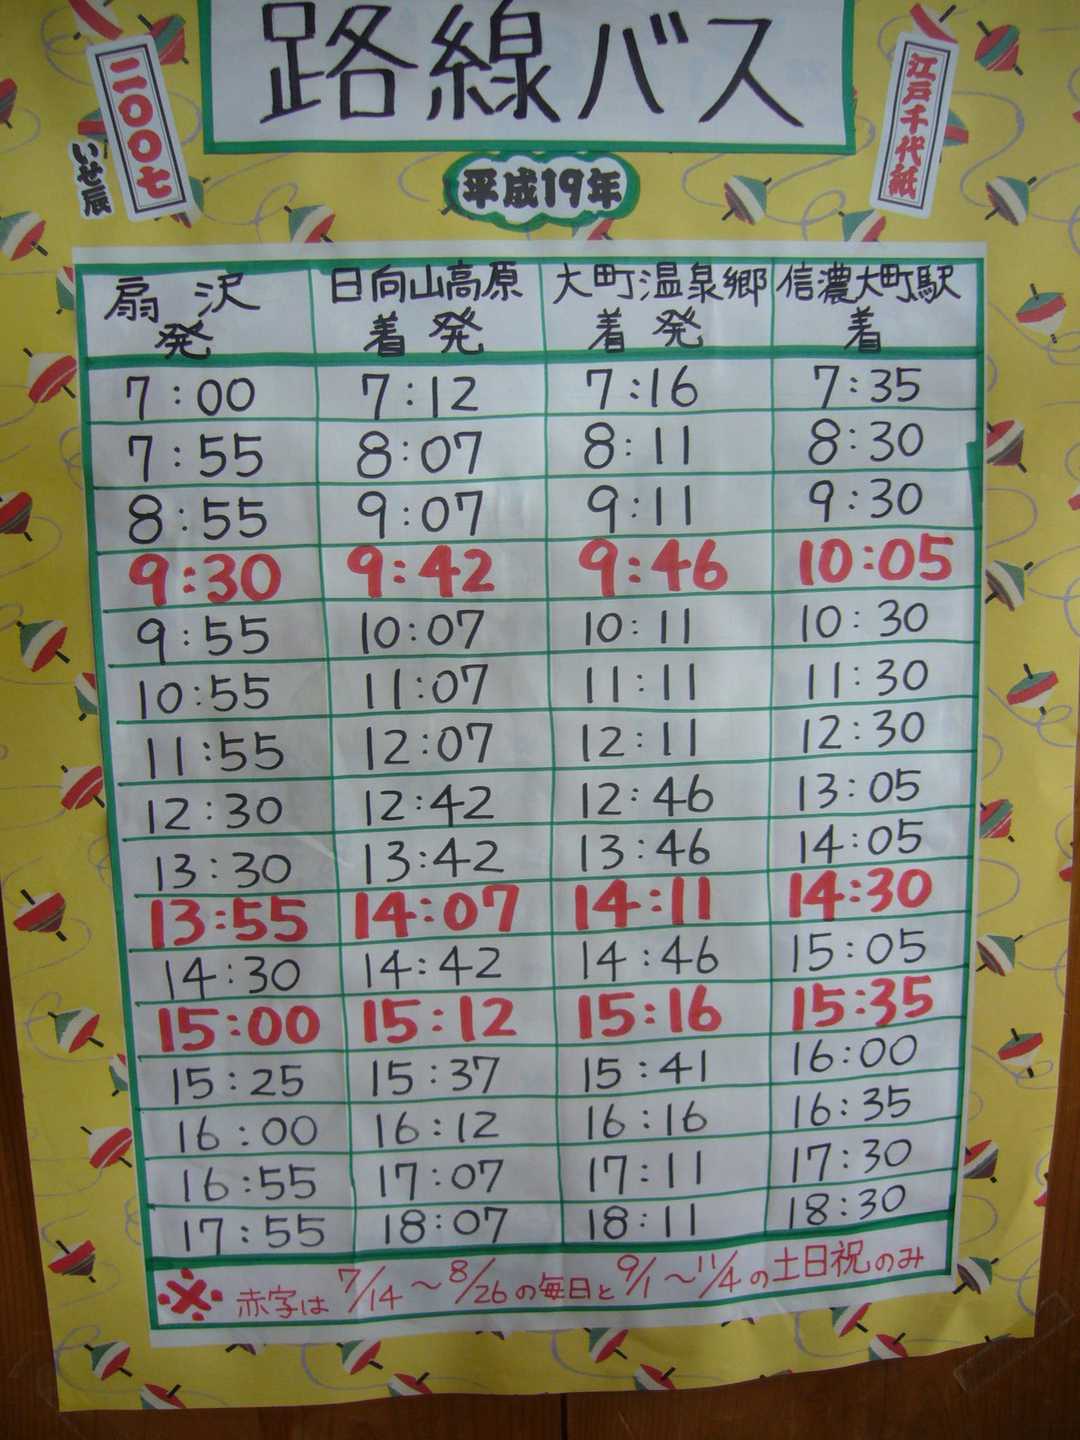 路線バス
二〇〇七
いせ辰
江戸千代紙
平成19年
扇沢 日向山高原 大町温泉郷 信濃大町駅
発 着発 着発 着
7:00 7:12 7:16 7:35
7:55 8:07 8:11 8:30
8:55 9:07 9:11 9:30
9:30 9:42 9:46 10:05
9:55 10:07 10:11 10:30
10:55 11:07 11:11 11:30
11:55 12:07 12:11 12:30
12:30 12:42 12:46 13:05
13:30 13:42 13:46 14:05
13:55 14:07 14:11 14:30
14:30 14:42 14:46 15:05
15:00 15:12 15:16 15:35
15:25 15:37 15:41 16:00
16:00 16:12 16:16 16:35
16:55 17:07 17:11 17:30
17:55 18:07 18:11 18:30
※赤字は7/14～8/26の毎日と9/1～11/4の土日祝のみ